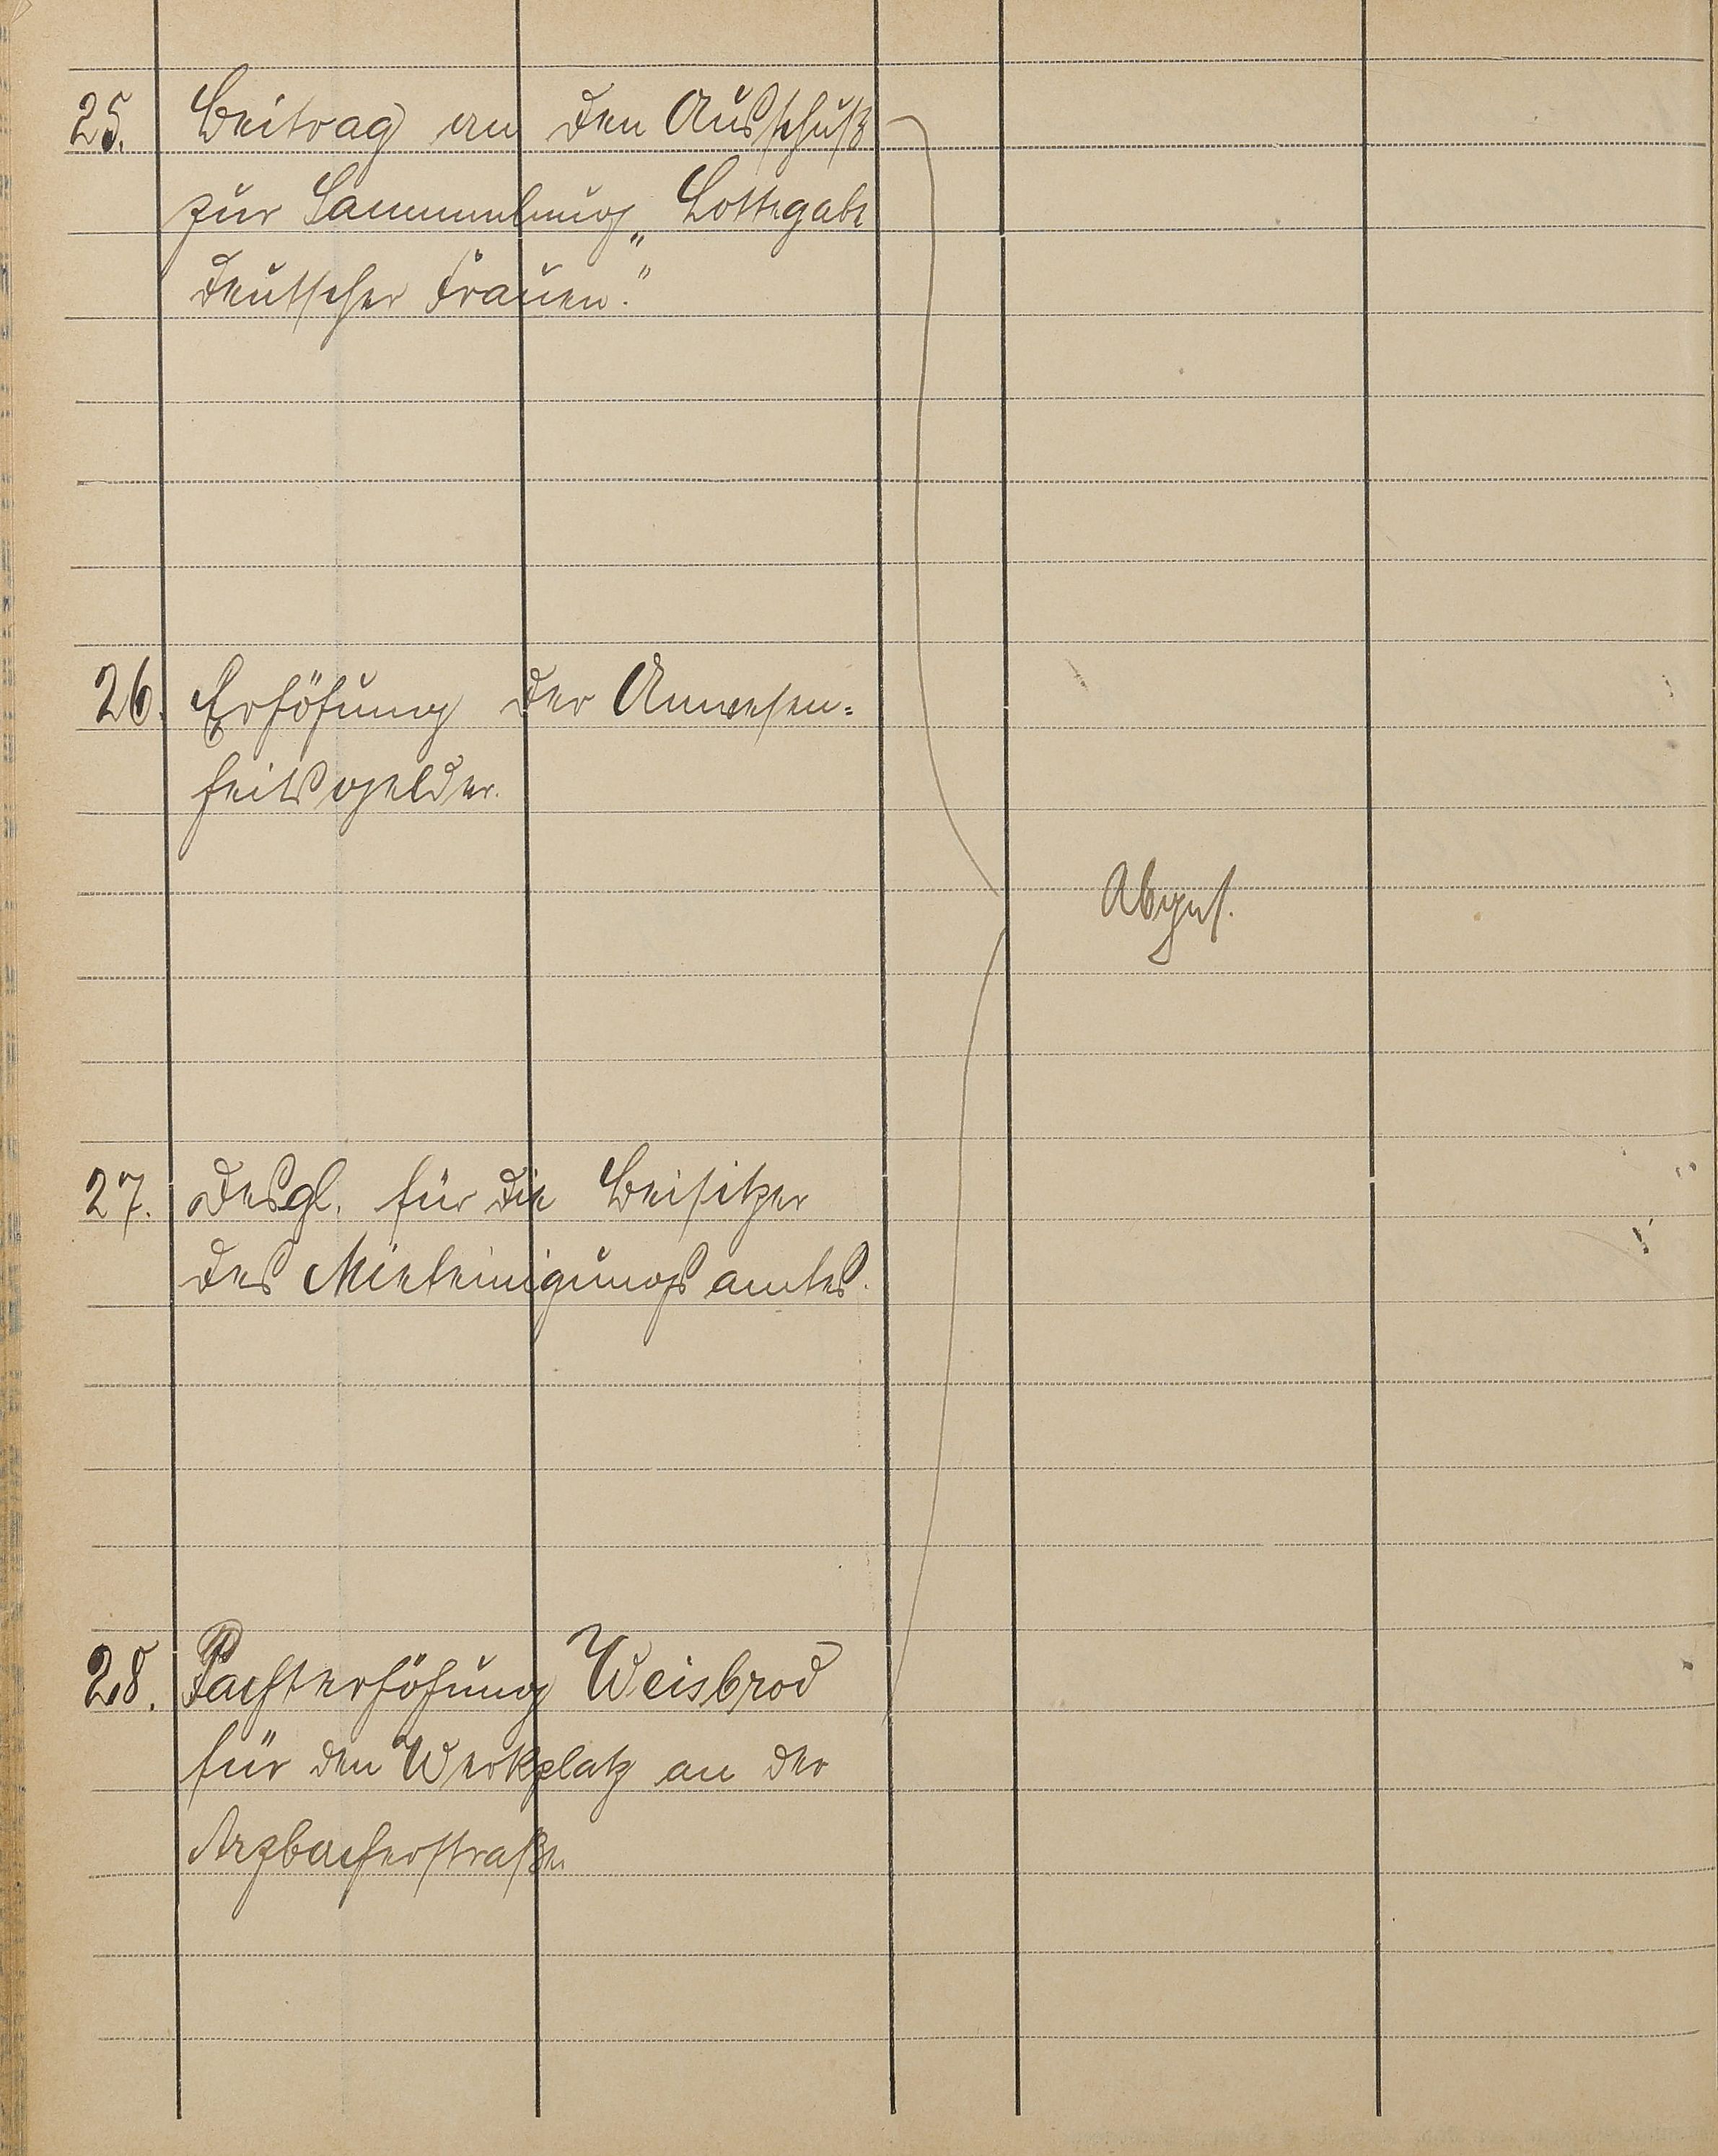 25. Beitrag an den Ausschuß
zur Sammlung „Lottegabe
deutscher Frauen."
26. Erhöhung der Anwesen=
heitsgelder.
Abges.
27. Desgl. für die Beisitzer
des Mieteinigungsamtes.
28. Pachterhöhung Weisbrod
für den Werkplatz an der
Arzbacherstraße